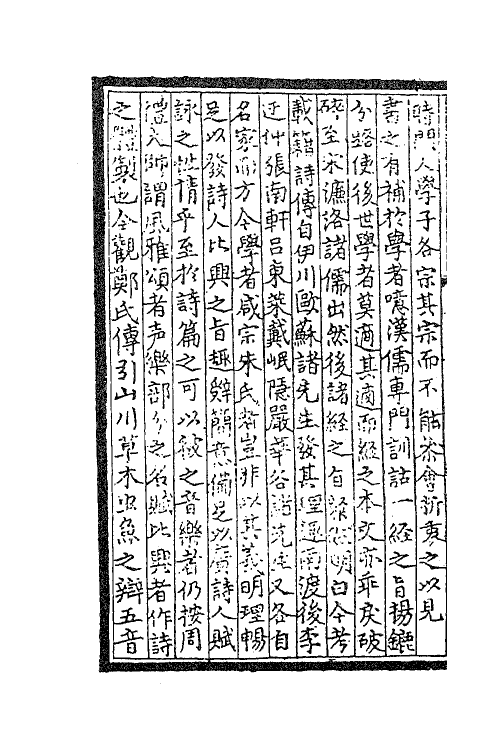 時門人學子各宗其宗而不能參會折衷之以見
書之有補於學者噫漢儒專門訓詁一經之旨揚鑣
分路使後世學者莫適其適而經之本文亦乖戾破
碎至宋濂洛諸儒出然後諸經之旨明白今考
載籍詩傳自伊川歐蘇諸先生發其理趣南渡後李
迂仲張南軒呂東萊戴岷隱嚴華谷諸先生又各自
名家而方今學者咸宗朱氏者豈非以其義明理暢
足以發詩人比興之旨趣辭簡意備足以廣詩人賦
詠之性情乎至於詩篇之可以被之音樂者仍按周
禮大師謂風雅頌者声樂部分之名賦比興者作詩
之體製也今觀鄭氏傳引山川草木虫魚之辯五音